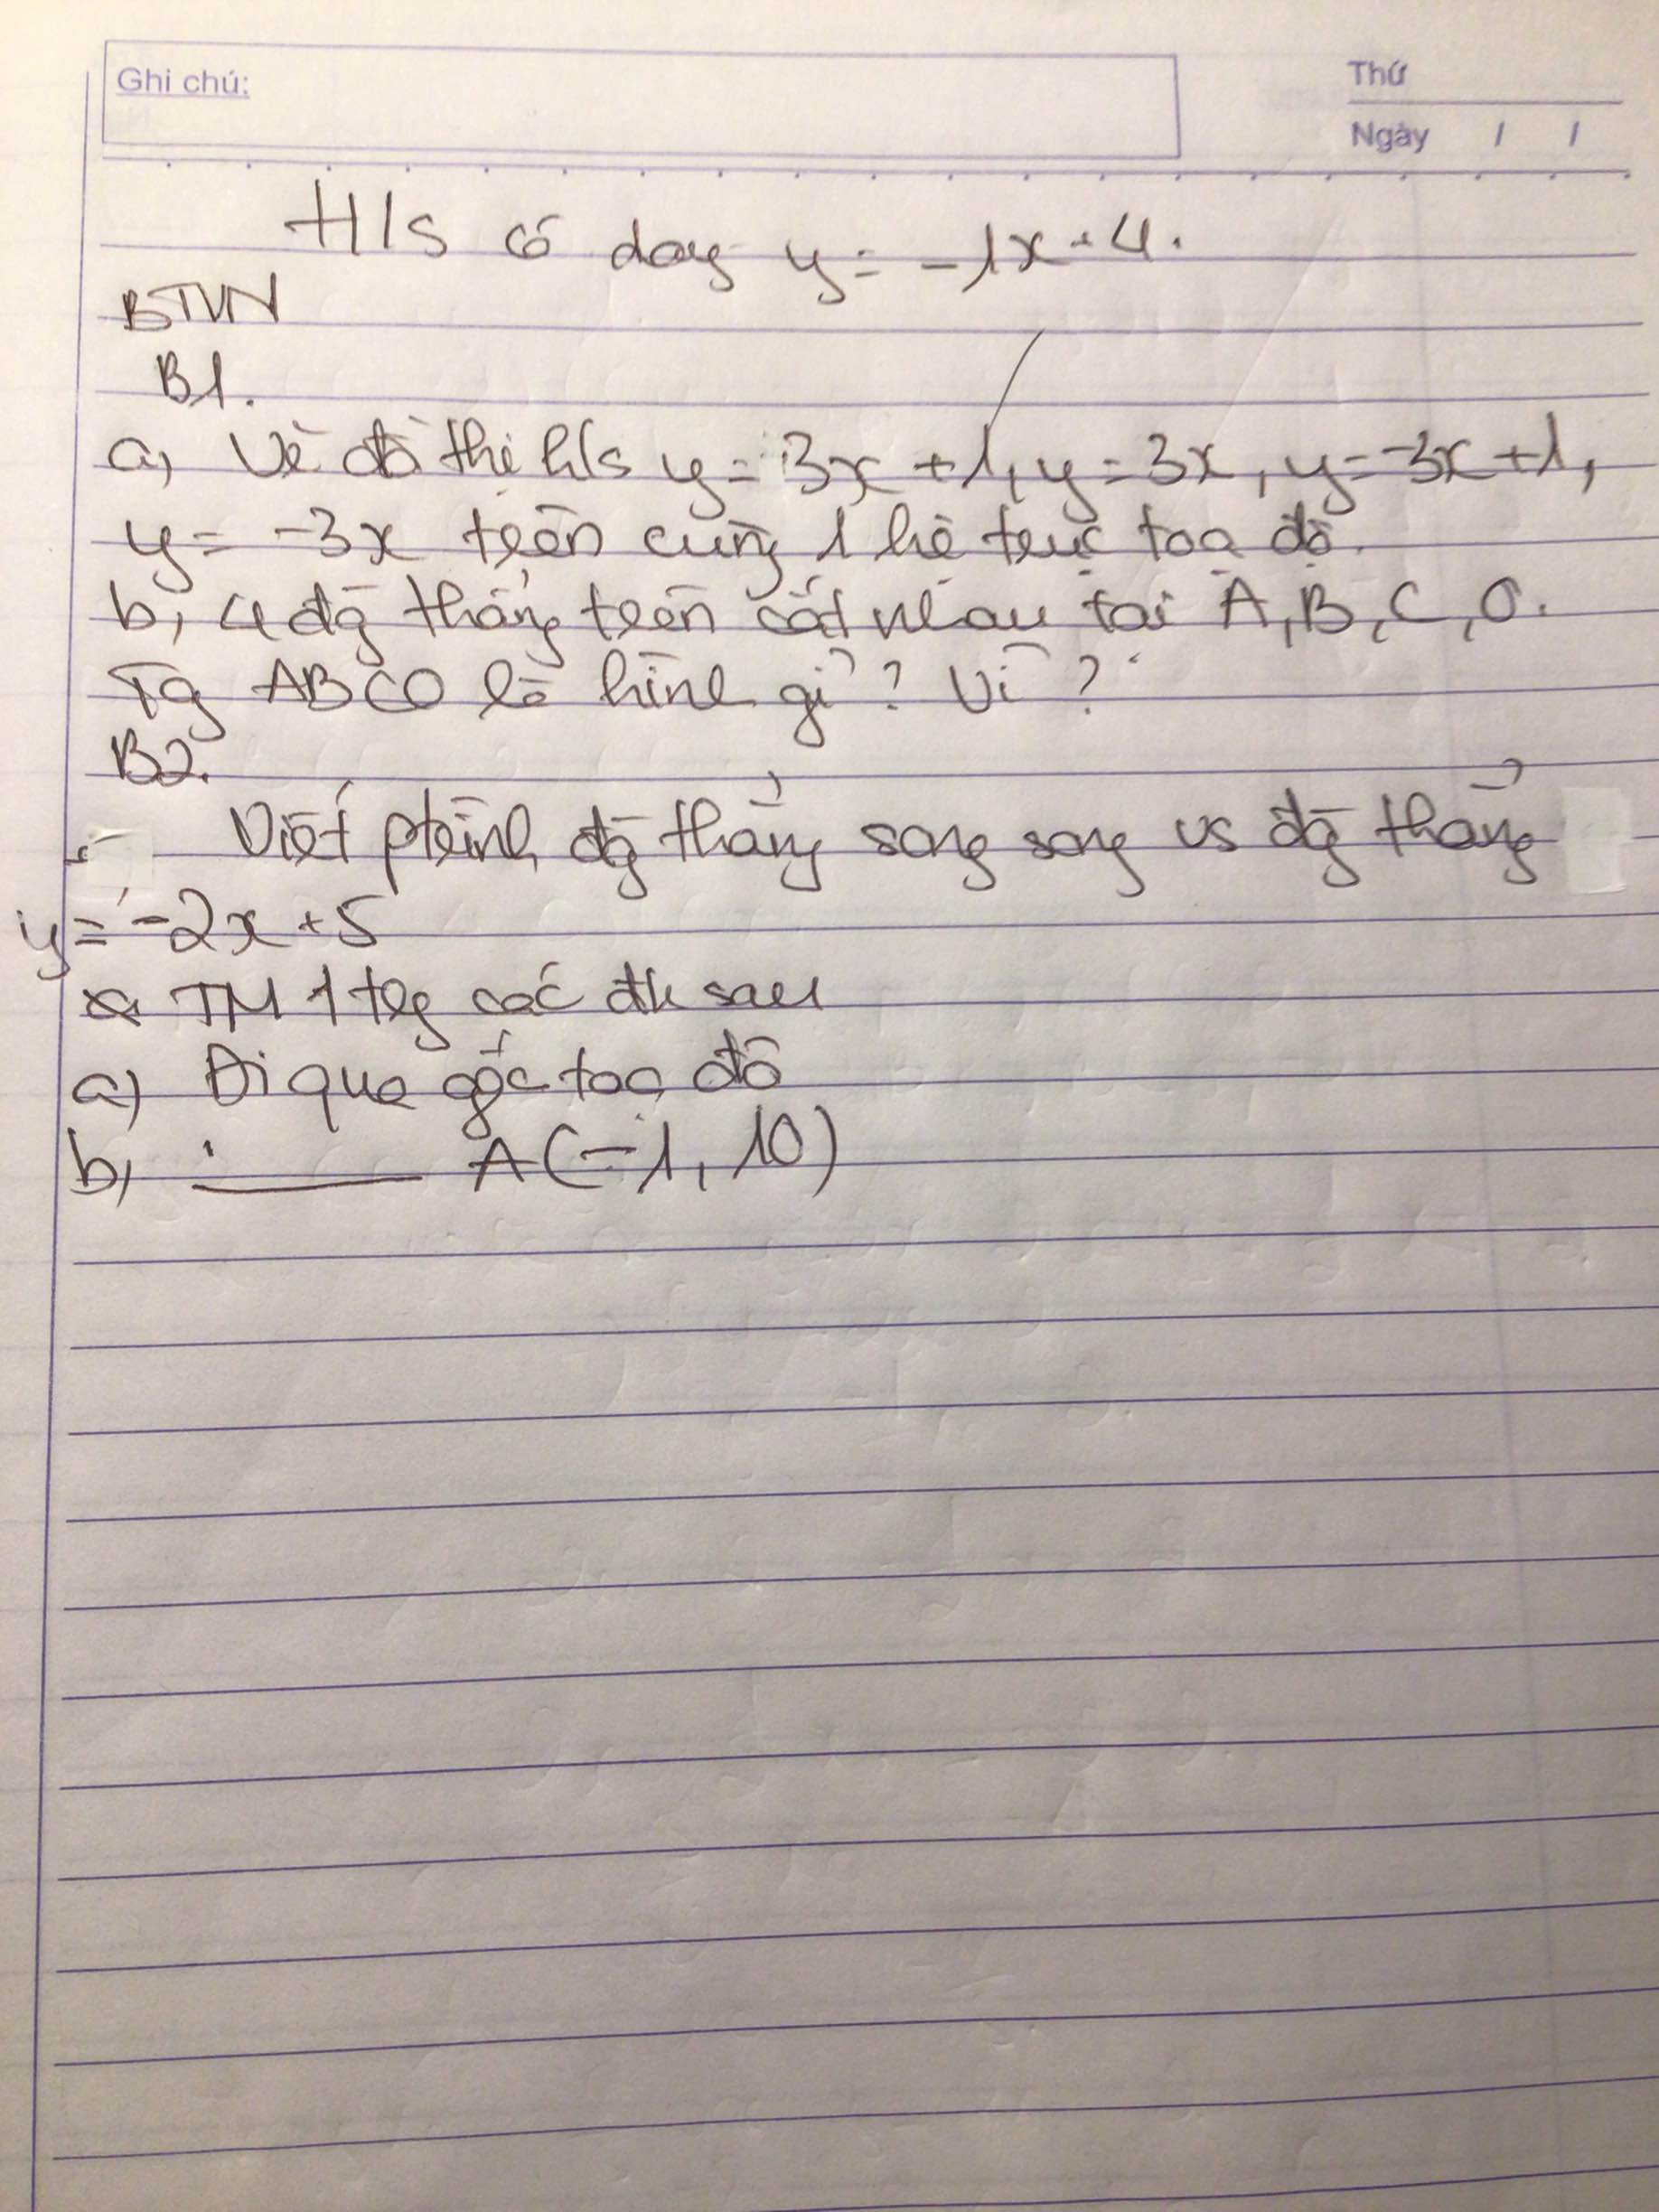 Ghi chú:
Thứ
Ngày / /
H/s có dạng y = -1x + 4.
BTVN
B1.
a, Vẽ đồ thị h/s y = 3x + 1, y = 3x, y = -3x + 1,
y = -3x trên cùng 1 hệ trục toạ độ.
b, 4 đg thẳng trên cắt nhau tại A, B, C, O.
Tg ABCO là hình gì? Vì?
B2.
Viết ptrình đg thẳng song song vs đg thẳng
y = -2x + 5
TM 1 trg các đk sau
a) Đi qua gốc toạ độ
b, A(-1, 10)